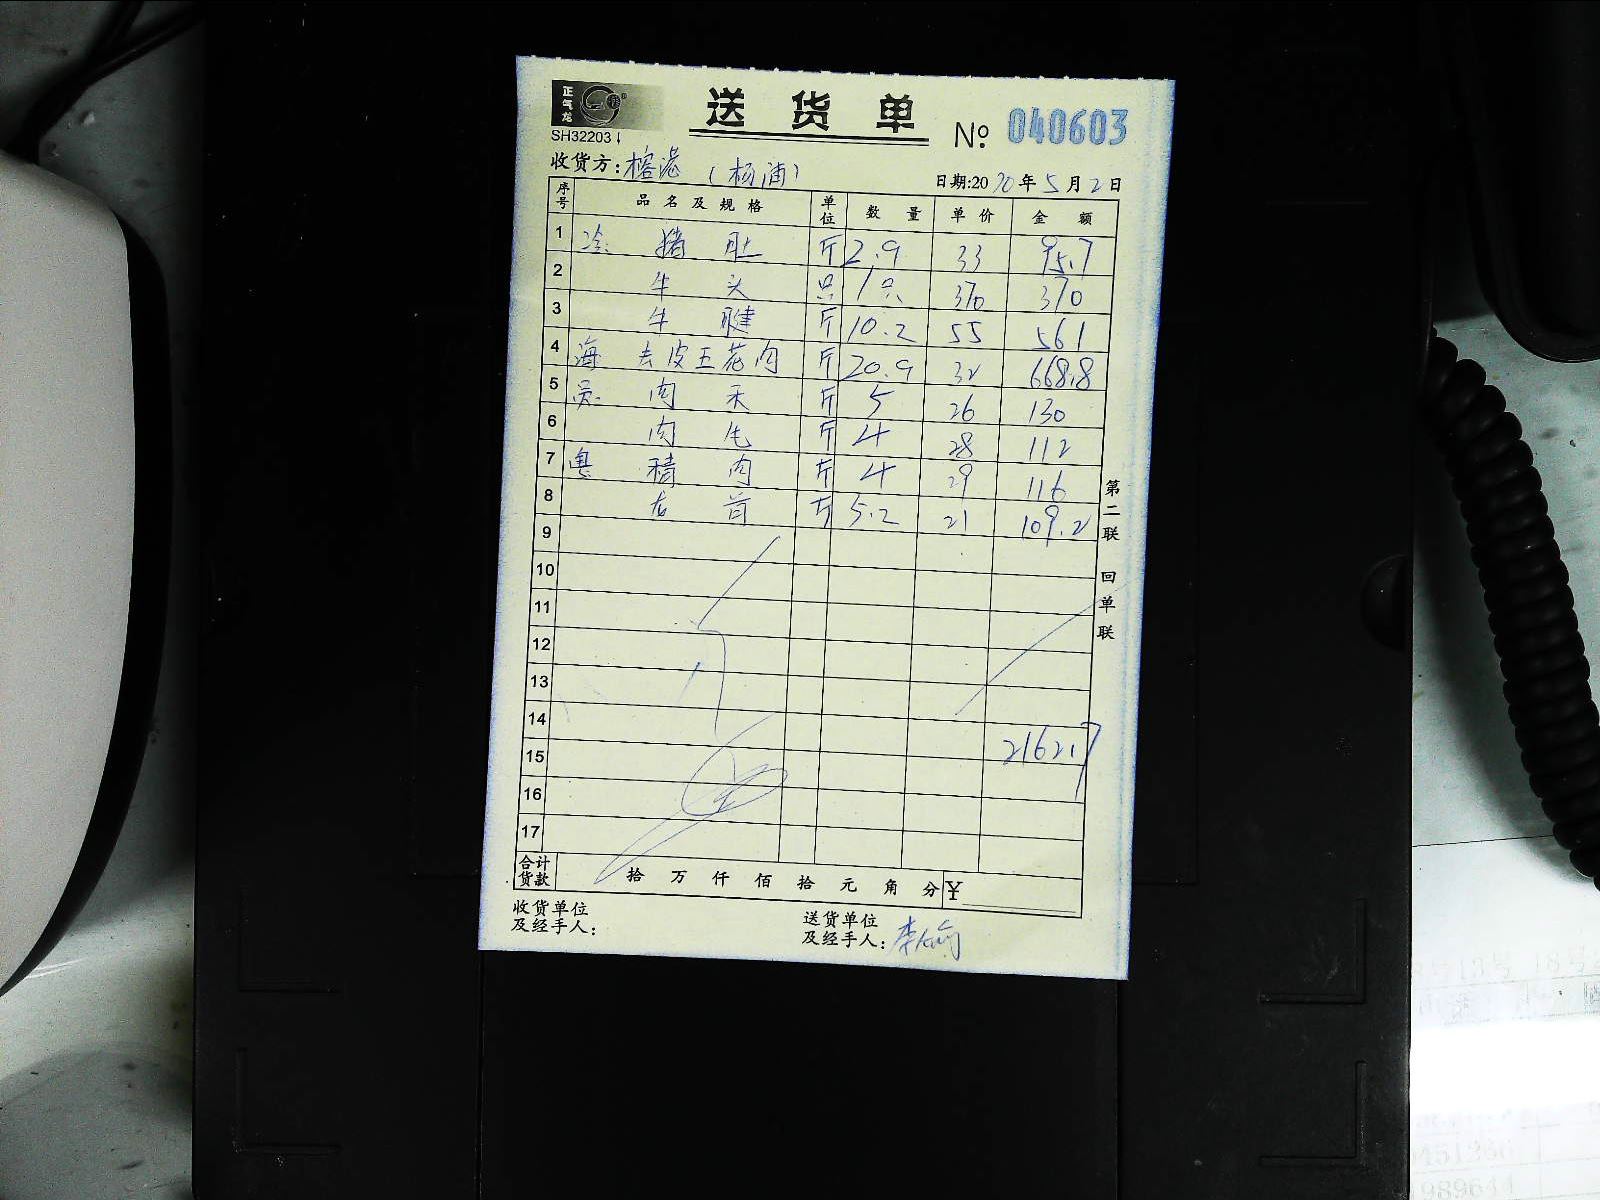 正气龙
送货单
SH32203
№ 040603
收货方：榕港（杨浦）
日期:20 20年5月2日
序号 品名及规格 单位 数量 单价 金额
1 冷: 猪肚 斤 2.9 33 95.7
2 牛头 只 1只 370 370
3 牛腱 斤 10.2 55 561
4 海 去皮五花肉 斤 20.9 32 668.8
5 员: 肉禾 斤 5 26 130
6 肉 斤 4 28 112
7 粤 精肉 斤 4 29 116
8 斤 5.2 21 109.2
9
10
11
12
13
14
15 2162.7
16
17
合计货款 拾万仟佰拾元角分 ¥
收货单位及经手人：
送货单位及经手人：
第二联 回单联